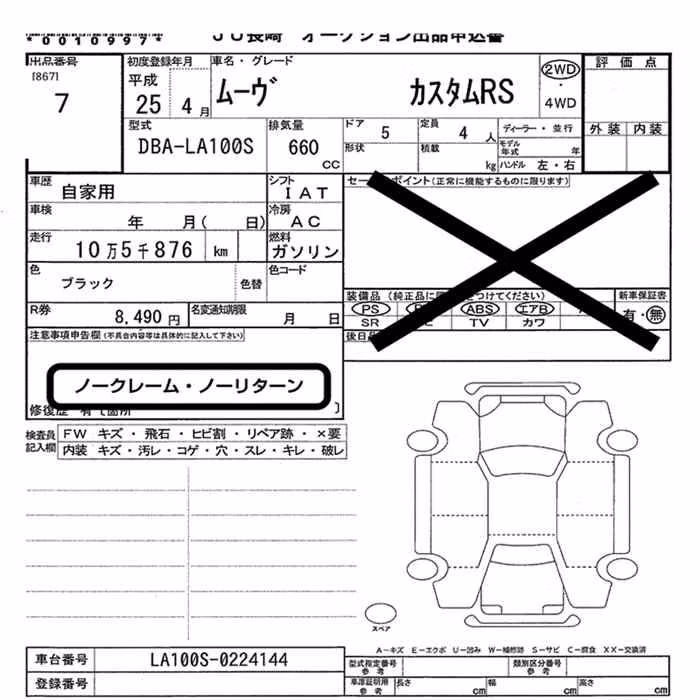 *0010997* JU長崎 オークション出品申込書
出品番号 初度登録年月 車名・グレード 評価点
[867] 平成 2WD
7 25 4月 ムーヴ カスタムRS ・
4WD
型式 排気量 ドア 5 定員 4人 ディーラー・並行 外装 内装
DBA-LA100S 660 CC 形状 積載 kg モデル年式 年
ハンドル 左・右
車歴 自家用 シフト IAT セー ポイント(正常に機能するものに限ります)
車検 年 月( 日) 冷房 AC
走行 10万5千876 km 燃料 ガソリン
色 ブラック 色替 色コード
装備品(純正品に つけてください) 新車保証書
R券 8,490円 名変通知期限 月 日 PS ABS エアB 有・無
SR TV カワ
注意事項申告欄(不具合内容等は具体的に記入して下さい) 後日
ノークレーム・ノーリターン
修復歴 有 て箇所 〕
検査員記入欄 FW キズ・飛石・ヒビ割・リペア跡・×要
内装 キズ・汚レ・コゲ・穴・スレ・キレ・破レ
スペア
A-キズ E-エクボ U-凹み W-補修跡 S-サビ C-腐食 XX-交換済
車台番号 LA100S-0224144 型式指定番号 参考 類別区分番号 参考
登録番号 車庫証明用 参考 長さ cm 幅 cm 高さ cm